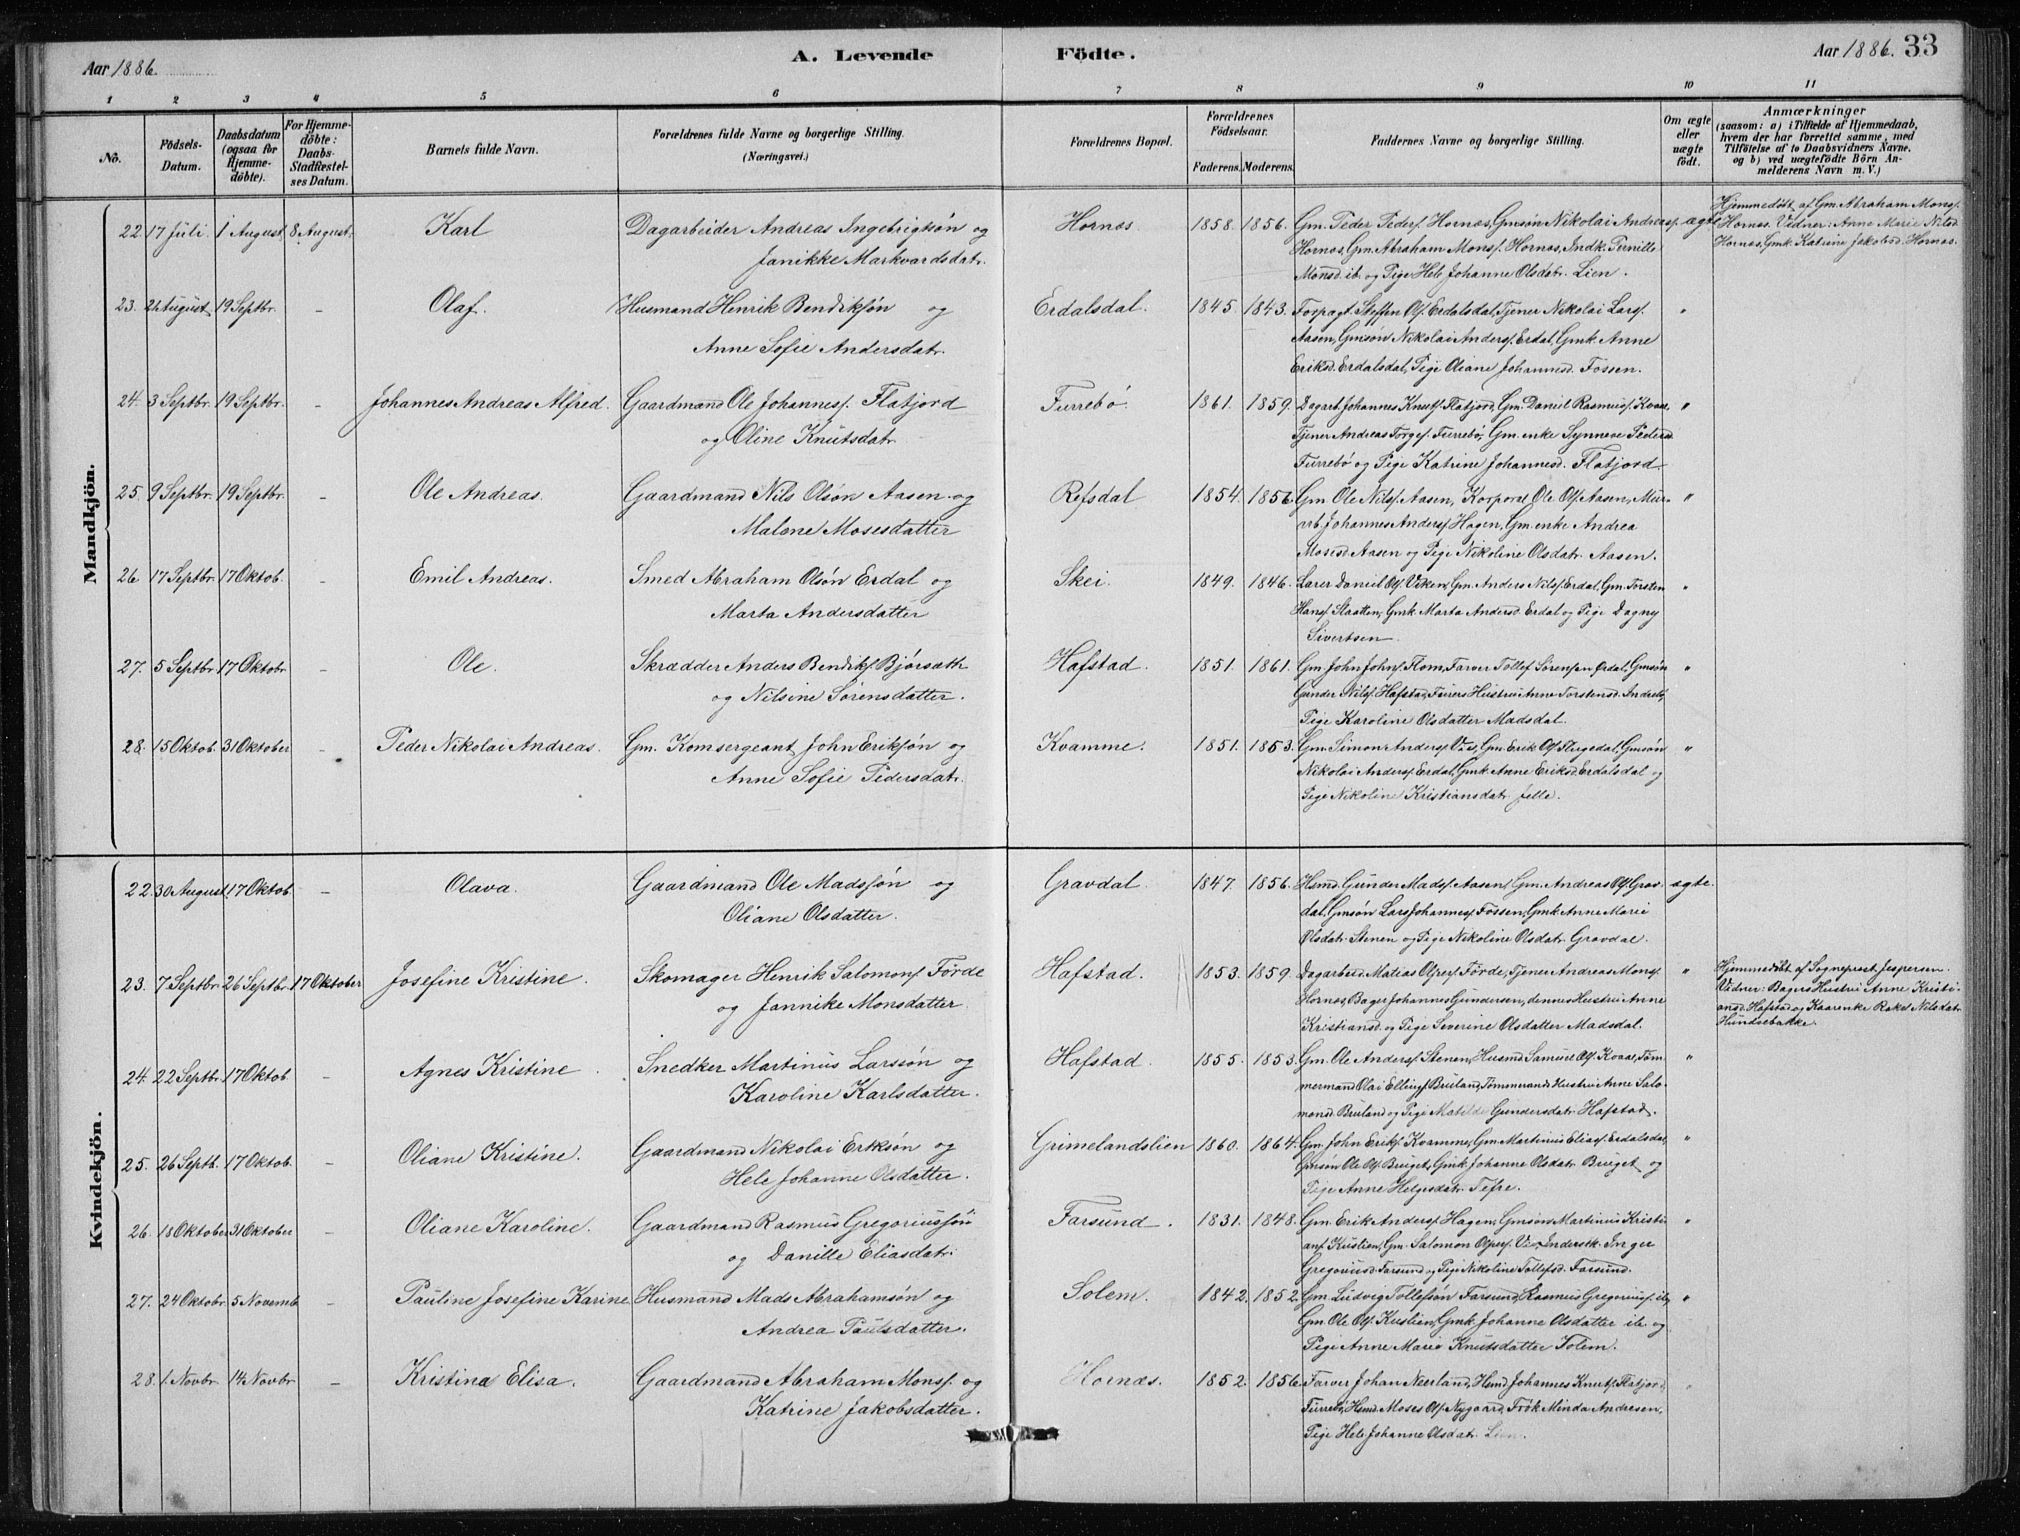 Aar 1886.
A. Levende
Födte.
Aar 1886. 33
1 2 3 4 5 6 7 8 9 10 11
No.
Födsels-Datum.
Daabsdatum (ogsaa for Hjemme-döbte).
For Hjemme-döbte: Daabs-Stadfæstel-ses Datum.
Barnets fulde Navn.
Forældrenes fulde Navne og borgerlige Stilling.
(Næringsvei.)
Forældrenes Bopæl.
Forældrenes Födselsaar.
Faderens. Moderens.
Faddernes Navne og borgerlige Stilling.
Om ægte eller uægte födt.
Anmærkninger
(saasom: a) i Tilfælde af Hjemmedaab,
hvem der har forrettet samme, med
Tilföielse af to Daabsvidners Navne.
og b) ved uægtefödte Börn An-
melderens Navn m. V.)
Mandkjön.
22. 17 Juli. 1 August 8 August. Karl Dagarbeider Andreas Ingebrigtsön og Hornæs 1858. 1856. Gm. Peder Peders. Hornæs, Gmsön Nikolai Andreas. ægte
Janikke Markvardsdatr. Hornæs, Gm. Abraham Mons. Hornæs, Indk. Pernille
Monsd. ib. og Pige Hele Johanne Olsdatr. Lien.
Hjemmedöbt af Gm. Abraham Mons.
Hornæs. Vidner: Anne Marie Nilsd
Hornæs, Gmk. Katrine Jakobsd. Hornæs.
23. 21 August 19 Septbr. - Olaf. Husmand Henrik Bendiksön og Erdalsdal. 1845. 1843. Forpagt. Steffen Ols. Erdalsdal, Tjener Nikolai Lars. "
Anne Sofie Andersdatr. Aasen, Gmsön Nikolai Anders. Erdal, Gmk. Anne
Eriksd. Erdalsdal, Pige Oliane Johannesd. Fossen.
24. 3 Septbr. 19 Septbr. - Johannes Andreas Alfred. Gaardmand Ole Johanness. Flatjord Furrebö. 1861. 1859. Dagarb. Johannes Knuts. Flatjord, Gm. Daniel Rasmus. Kvaal, "
og Oline Knutsdatr. Tjener Andreas Torges. Furrebö, Gm. enke Synneve Peders.
Furrebö og Pige Katrine Johannesd. Flatjord.
25. 9 Septbr. 19 Septbr. - Ole Andreas. Gaardmand Nils Olsön Aasen og Refsdal 1854. 1856 Gm. Ole Nils. Aasen, Korporal Ole Ols. Aasen, Mur- "
Malene Mosesdatter arb. Johannes Anders. Hagen, Gm. enke Andrea
Mosesd. Aasen og Pige Nikoline Olsdatr. Aasen.
26 17 Septbr. 17 Oktob. - Emil Andreas. Smed Abraham Olsön Erdal og Skei. 1849. 1846. Lærer Daniel Ols. Viken, Gm. Anders Nils. Erdal, Gm. Torsten "
Marta Andersdatter Hans. Slaatten, Gmk. Marta Andersd. Erdal og Pige Dagny
Sivertsen.
27. 5 Septbr. 17 Oktobr - Ole. Skrædder Anders Bendiks. Bjørsæth Hafstad. 1851. 1861. Gm. John Johns. Flom, Farver Tollef Sörensen Ordal, Gmsön "
og Nilsine Sørensdatter. Gunder Nils. Hafstad, Furers Hustru Anne Torstensd.
Pige Karoline Olsdatter Madsdal.
28. 15 Oktob. 31 Oktober - Peder Nikolai Andreas. Gm. Komsergeant John Eriksön og Kvamme. 1851. 1853. Gm. Simon Anders. Vie, Gm. Erik Ols. Flugedal, Gmsön "
Anne Sofie Pedersdatr. Nikolai Anders. Erdal, Gmk. Anne Eriksd. Erdalsdal og
Pige Nikoline Kristiansdatr. Jelle.
Kvindekjön.
22. 30 August. 17 Oktob. - Olava. Gaardmand Ole Madsön og Gravdal. 1847. 1856. Hsmd. Gunder Mads. Aasen, Gm. Andreas Ols. Grav- ægte.
Oliane Olsdatter. dal, Gmsön Lars Johannes. Fossen, Gmk Anne Marie
Olsdatr. Stenen og Pige Nikoline Olsdatr. Gravdal.
23. 7 Septbr. 26 Septbr. 17 Oktober Josefine Kristine. Skomager Henrik Salomons. Förde Hafstad. 1853. 1859. Dagarbeid. Matias Olpers. Förde, Tjener Andreas Mons. "
og Jannike Monsdatter. Hornæs, Bager Johannes Gundersen, dennes Hustru Anne
Kristiansd. og Pige Severine Olsdatter Madsdal.
Hjemmedöbt af Sogneprest Jespersen.
Vidner: Bagers Hustru Anne Kristi-
ansd. Hafstad og Kaarenke Rakel Nilsdatr
Hundsebakke.
24. 22 Septbr. 17 Oktob. - Agnes Kristine Snedker Martinus Larssön og Hafstad. 1855. 1853. Gm. Ole Anders. Stenen, Husmd. Samuel Ols. Kvaal, Töm- "
Karoline Karlsdatter. mermand Olai Ellings. Bruland, Tömmermands Hustru Anne Salo-
monsd. Bruland og Pige Matilde Gundersdatr. Hafstad.
25. 26 Septb. 17 Oktob. - Oliane Kristine. Gaardmand Nikolai Eriksön og Grimelandslien 1860. 1864. Gm. John Eriks. Kvamme, Gm. Martinus Elias. Erdalsdal, "
Hele Johanne Olsdatter. Gmsön Ole Ols. Bruget, Gmk. Johanne Olsdatr. Bruget og
Pige Anne Helgesdatr. Tefre.
26. 18 Oktober 31 Oktober - Oliane Karoline. Gaardmand Rasmus Gregoriussön Farsund. 1831. 1848. Gm. Erik Anders. Hagen, Gmsön Martinus Kristi- "
og Danille Eliasdatr. ans. Kustien, Gm. Salomon Olpers. Vie, Inderstk. Inger
Gregoriusd. Farsund og Pige Nikoline Tollefsd. Farsund.
27. 24 Oktobr. 5 Novemb - Pauline Josefine Karine Husmand Mads Abrahamsön og Solem. 1842. 1852. Gm. Ludvig Tollefsön Farsund, Rasmus Gregorius. ib, "
Andrea Paulsdatter. Gm. Ole Ols. Kustien, Gmk. Johanne Olsdatter ib. og
Pige Anne Marie Knutsdatter Solem.
28. 1. Novbr 14 Novbr - Kristine Elisa. Gaardmand Abraham Mons. og Hornæs. 1852. 1856 Farver Johan Neerland, Hsmd Johannes Knuts. Flatjord, "
Katrine Jakobsdatter. Furrebö, Hsmd. Moses Ols. Nygaard, Frök Minda Andresen,
Pige Hele Johanne Olsdatr. Lien.